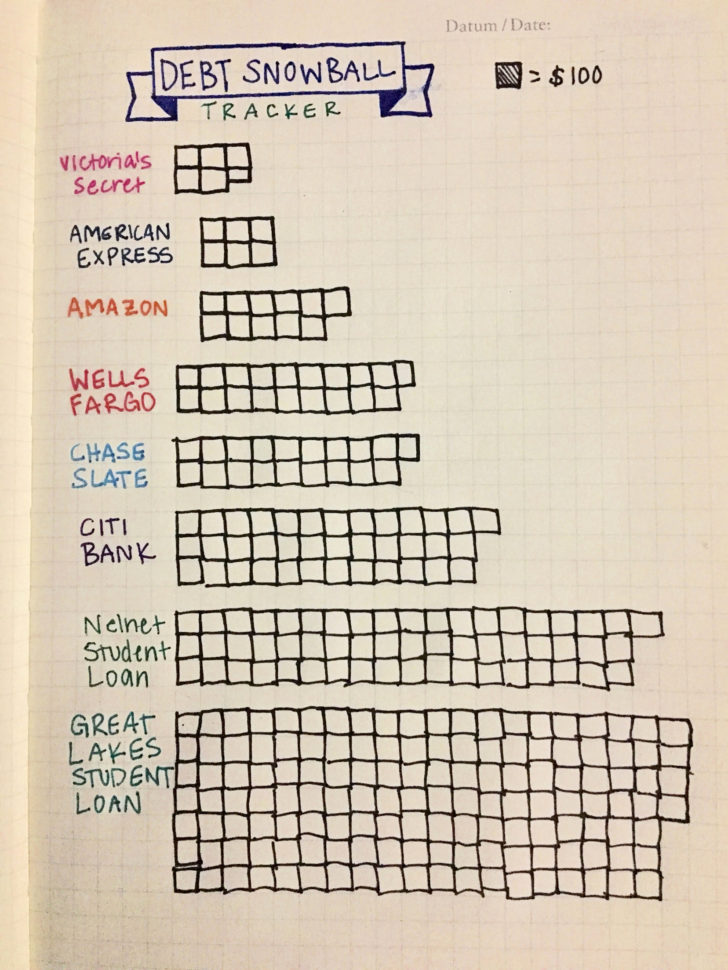 Datum / Date:
DEBT SNOWBALL
= $100
TRACKER
Victoria's
Secret
AMERICAN
EXPRESS
AMAZON
WELLS
FARGO
CHASE
SLATE
CITI
BANK
Nelnet
Student
Loan
GREAT
LAKES
STUDENT
LOAN